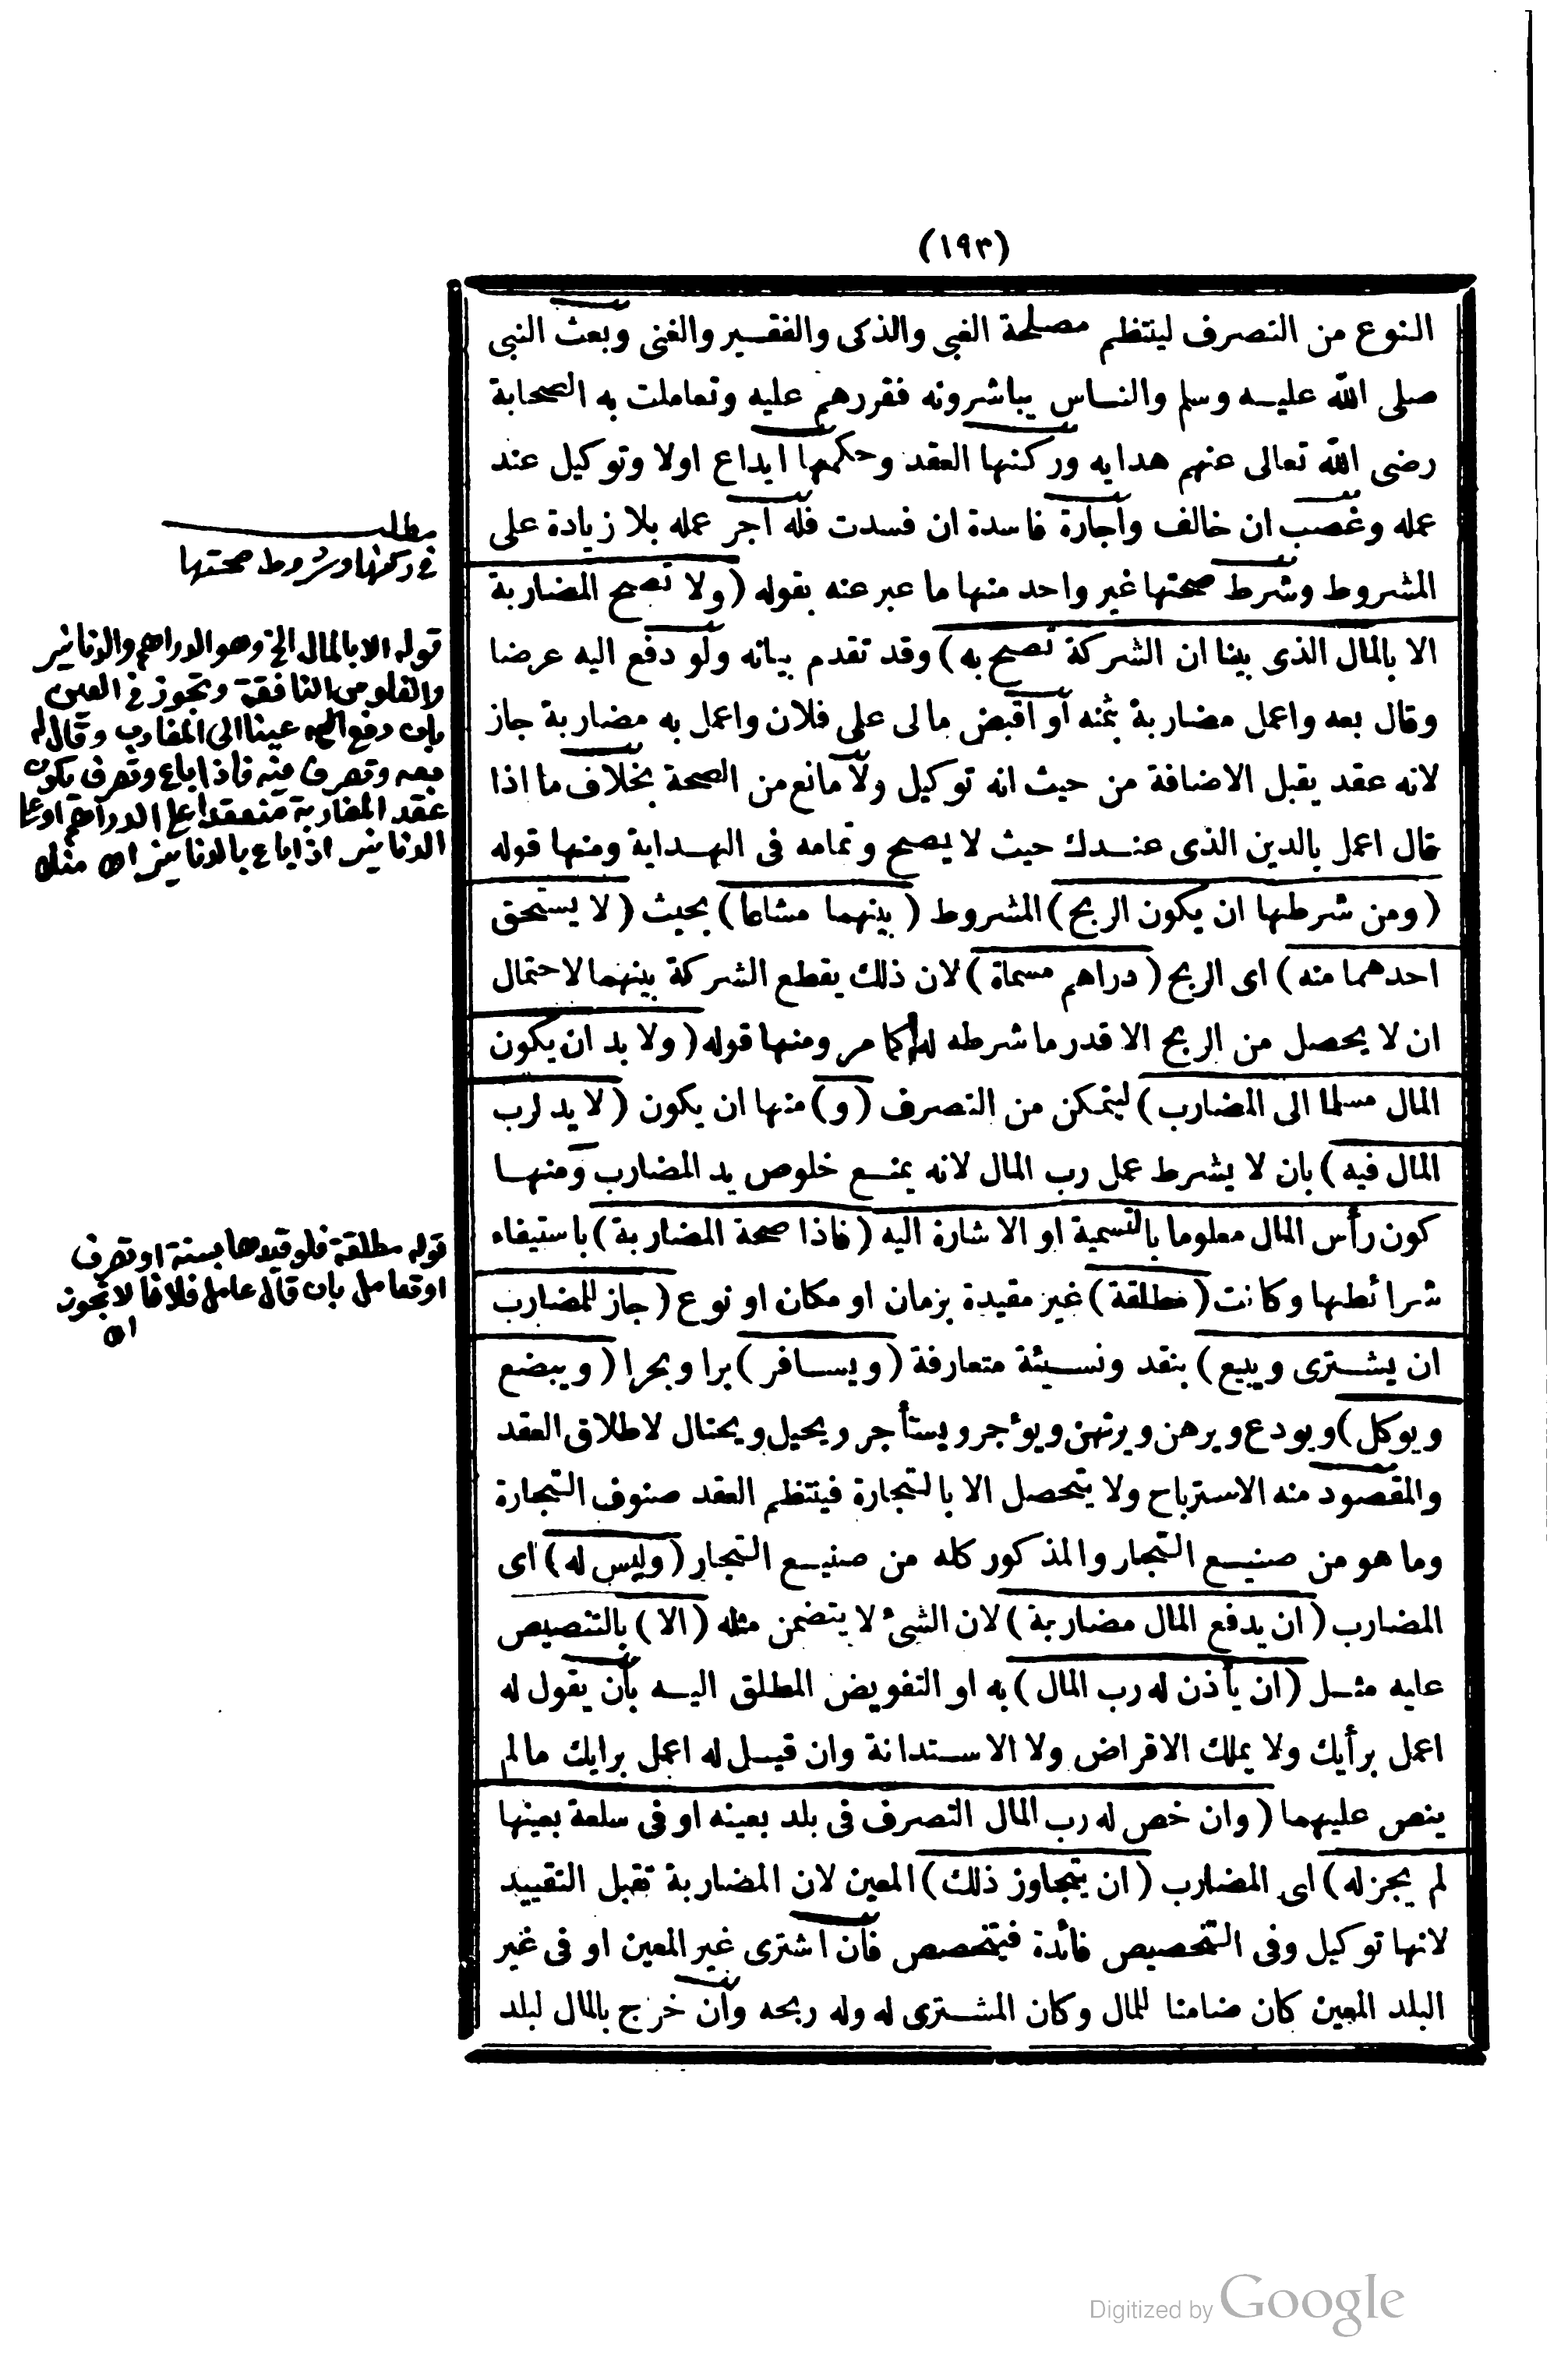 (١٩٣)
النوع من التصرف لينتظم مصلحة الغبى والذكى والفقير والغنى وبعث النبى
صلى الله عليه وسلم والناس يباشرونه فقررهم عليه وتعاملت به الصحابة
رضى الله تعالى عنهم هدايه وركنها العقد وحكمها ايداع اولا وتوكيل عند
عمله وغصب ان خالف واجارة فاسدة ان فسدت فله اجر عمله بلا زيادة على
المشروط وشرط صحتها غير واحد منها ما عبر عنه بقوله (ولا تصح المضاربة
الا بالمال الذى بينا ان الشركة تصح به) وقد تقدم بيانه ولو دفع اليه عرضا
وقال بعه واعمل مضاربة بثمنه او اقبض مالى على فلان واعمل به مضاربة جاز
لانه عقد يقبل الاضافة من حيث انه توكيل ولا مانع من الصحة بخلاف ما اذا
قال اعمل بالدين الذى عندك حيث لا يصح وتمامه فى الهداية ومنها قوله
(ومن شرطها ان يكون الربح) المشروط (بينهما مشاعا) بحيث (لا يستحق
احدهما منه) اى الربح (دراهم مسماة) لان ذلك يقطع الشركة بينهما لاحتمال
ان لا يحصل من الربح الا قدر ما شرطه له كما مر ومنها قوله (ولا بد ان يكون
المال مسلما الى المضارب) ليتمكن من التصرف (و) منها ان يكون (لا يد لرب
المال فيه) بان لا يشرط عمل رب المال لانه يمنع خلوص يد المضارب ومنها
كون رأس المال معلوما بالتسمية او الاشارة اليه (فاذا صحة المضاربة) باستيفاء
شرائطها وكانت (مطلقة) غير مقيدة بزمان او مكان او نوع (جاز للمضارب
ان يشترى ويبيع) بنقد ونسيئة متعارفة (ويسافر) برا وبحرا (ويبضع
ويوكل) ويودع ويرهن ويرتهن ويؤجر ويستأجر ويحيل ويحتال لاطلاق العقد
والمقصود منه الاسترباح ولا يتحصل الا بالتجارة فينتظم العقد صنوف التجارة
وما هو من صنيع التجار والمذكور كله من صنيع التجار (وليس له) اى
المضارب (ان يدفع المال مضاربة) لان الشئ لا يتضمن مثله (الا) بالتنصيص
عليه مثل (ان يأذن له رب المال) به او التفويض المطلق اليه بأن يقول له
اعمل برأيك ولا يملك الاقراض ولا الاستدانة وان قيل له اعمل برايك مالم
ينص عليهما (وان خص له رب المال التصرف فى بلد بعينه او فى سلعة بعينها
لم يجز له) اى المضارب (ان يتجاوز ذلك) المعين لان المضاربة تقبل التقييد
لانها توكيل وفى التخصيص فائدة فيتخصص فان اشترى غير المعين او فى غير
البلد المعين كان ضامنا للمال وكان المشترى له وله ربحه وان خرج بالمال لبلد
مطلب
فى ركنها وشروط صحتها
قوله الا بالمال الخ وهو الدراهم والدنانير
والفلوس النافقة وتجوز فى العين
بان دفع عينا الى المضارب وقال له
بعه وتصرف فيه فاذا باع وتصرف يكون
عقد المضاربة منعقدا على الدراهم او على
الدنانير اذا باع بالدنانير اه
قوله مطلقة فلو قيدها بسنة او تصرف
او تعامل بان قال عامل فلانا لا تجوز
اه
Digitized by Google